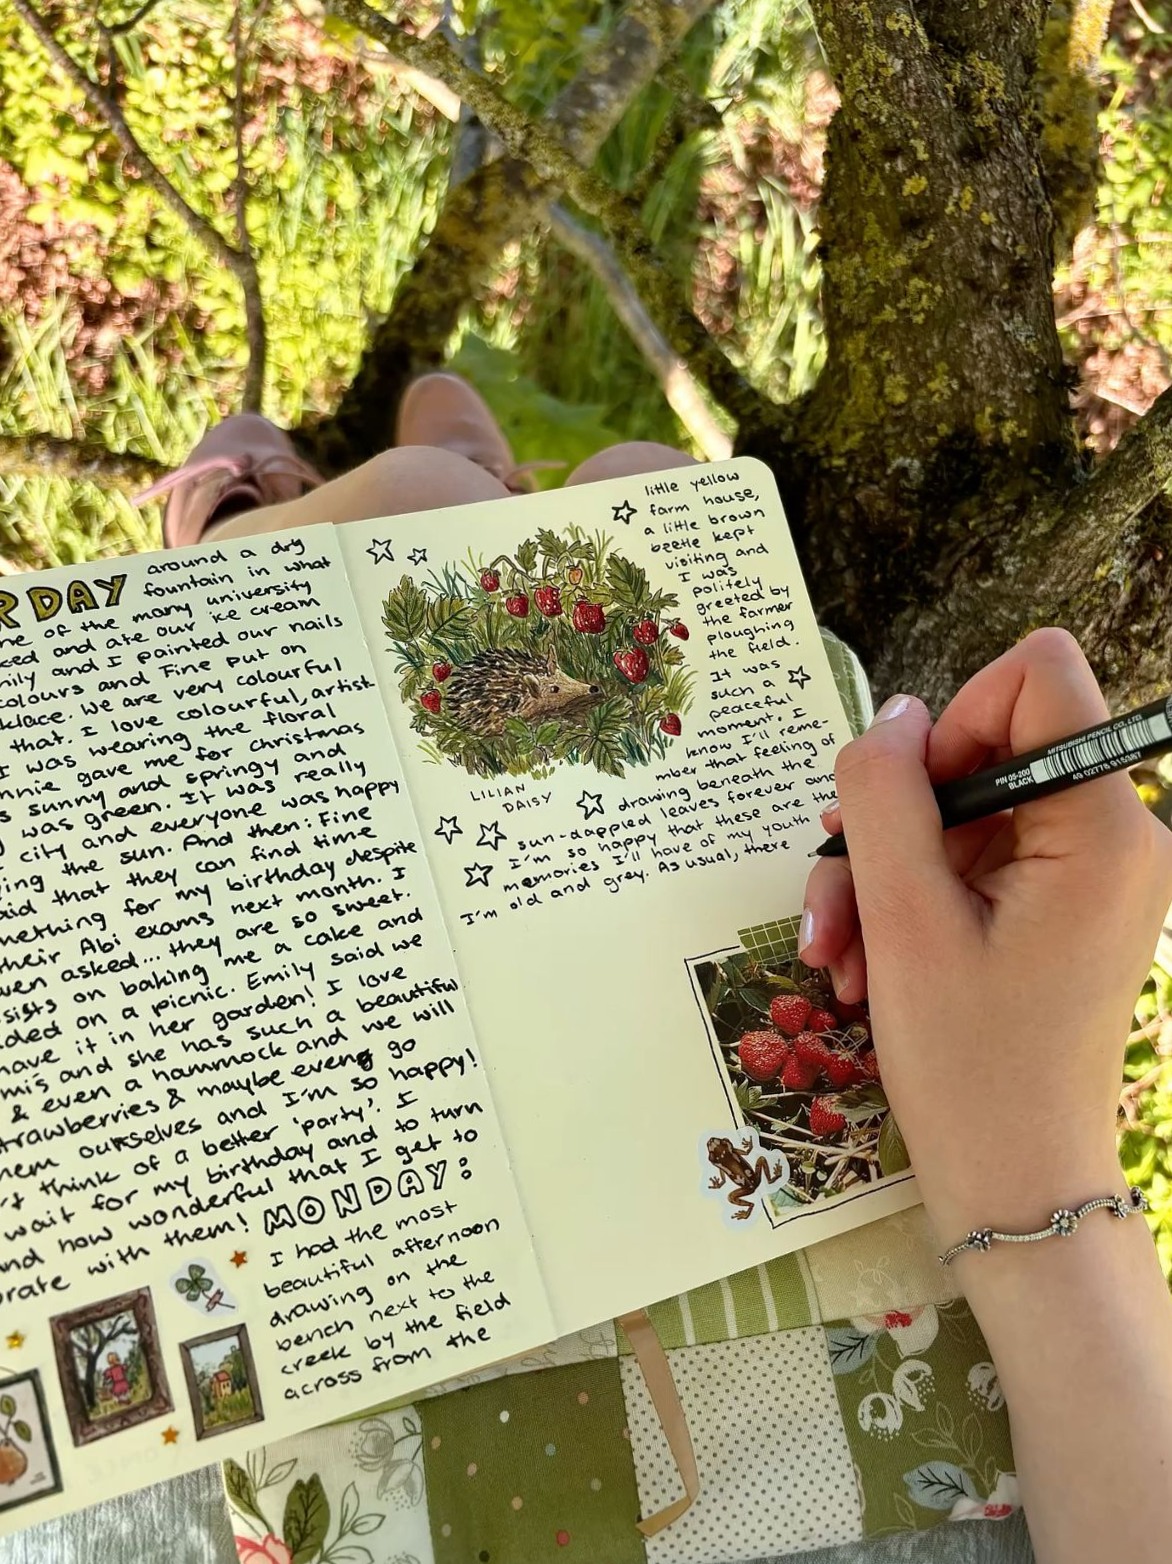 RDAY
around a dry
fountain in what
ne of the many university
ced and ate our ice cream
ily and I painted our nails
colours and Fine put on
klace. We are very colourful
that. I love colourful, artist
I was wearing the floral
nnie gave me for christmas
s sunny and springy and
was green. It was really
city and everyone was happy
ing the sun. And then: Fine
aid that they can find time
mething for my birthday despite
their Abi exams next month. I
ven asked... they are so sweet.
sists on baking me a cake and
ided on a picnic. Emily said we
have it in her garden! I love
mis and she has such a beautiful
& even a hammock and we will
trawberries & maybe even go
hem ourselves and I'm so happy!
't think of a better 'party'. I
wait for my birthday and to turn
and how wonderful that I get to
brate with them!
MONDAY:
I had the most
beautiful afternoon
drawing on the
bench next to the
creek by the field
across from the
little yellow
farm house,
a little brown
beetle kept
visiting and
I was
politely
greeted by
the farmer
ploughing
the field.
It was
such a
peaceful
moment. I
know I'll reme-
mber that feeling of
drawing beneath the
sun-dappled leaves forever and
I'm so happy that these are the
memories I'll have of my youth
I'm old and grey. As usual, there
LILIAN
DAISY
MITSUBISHI PENCIL CO., LTD.
PIN 05-200
BLACK